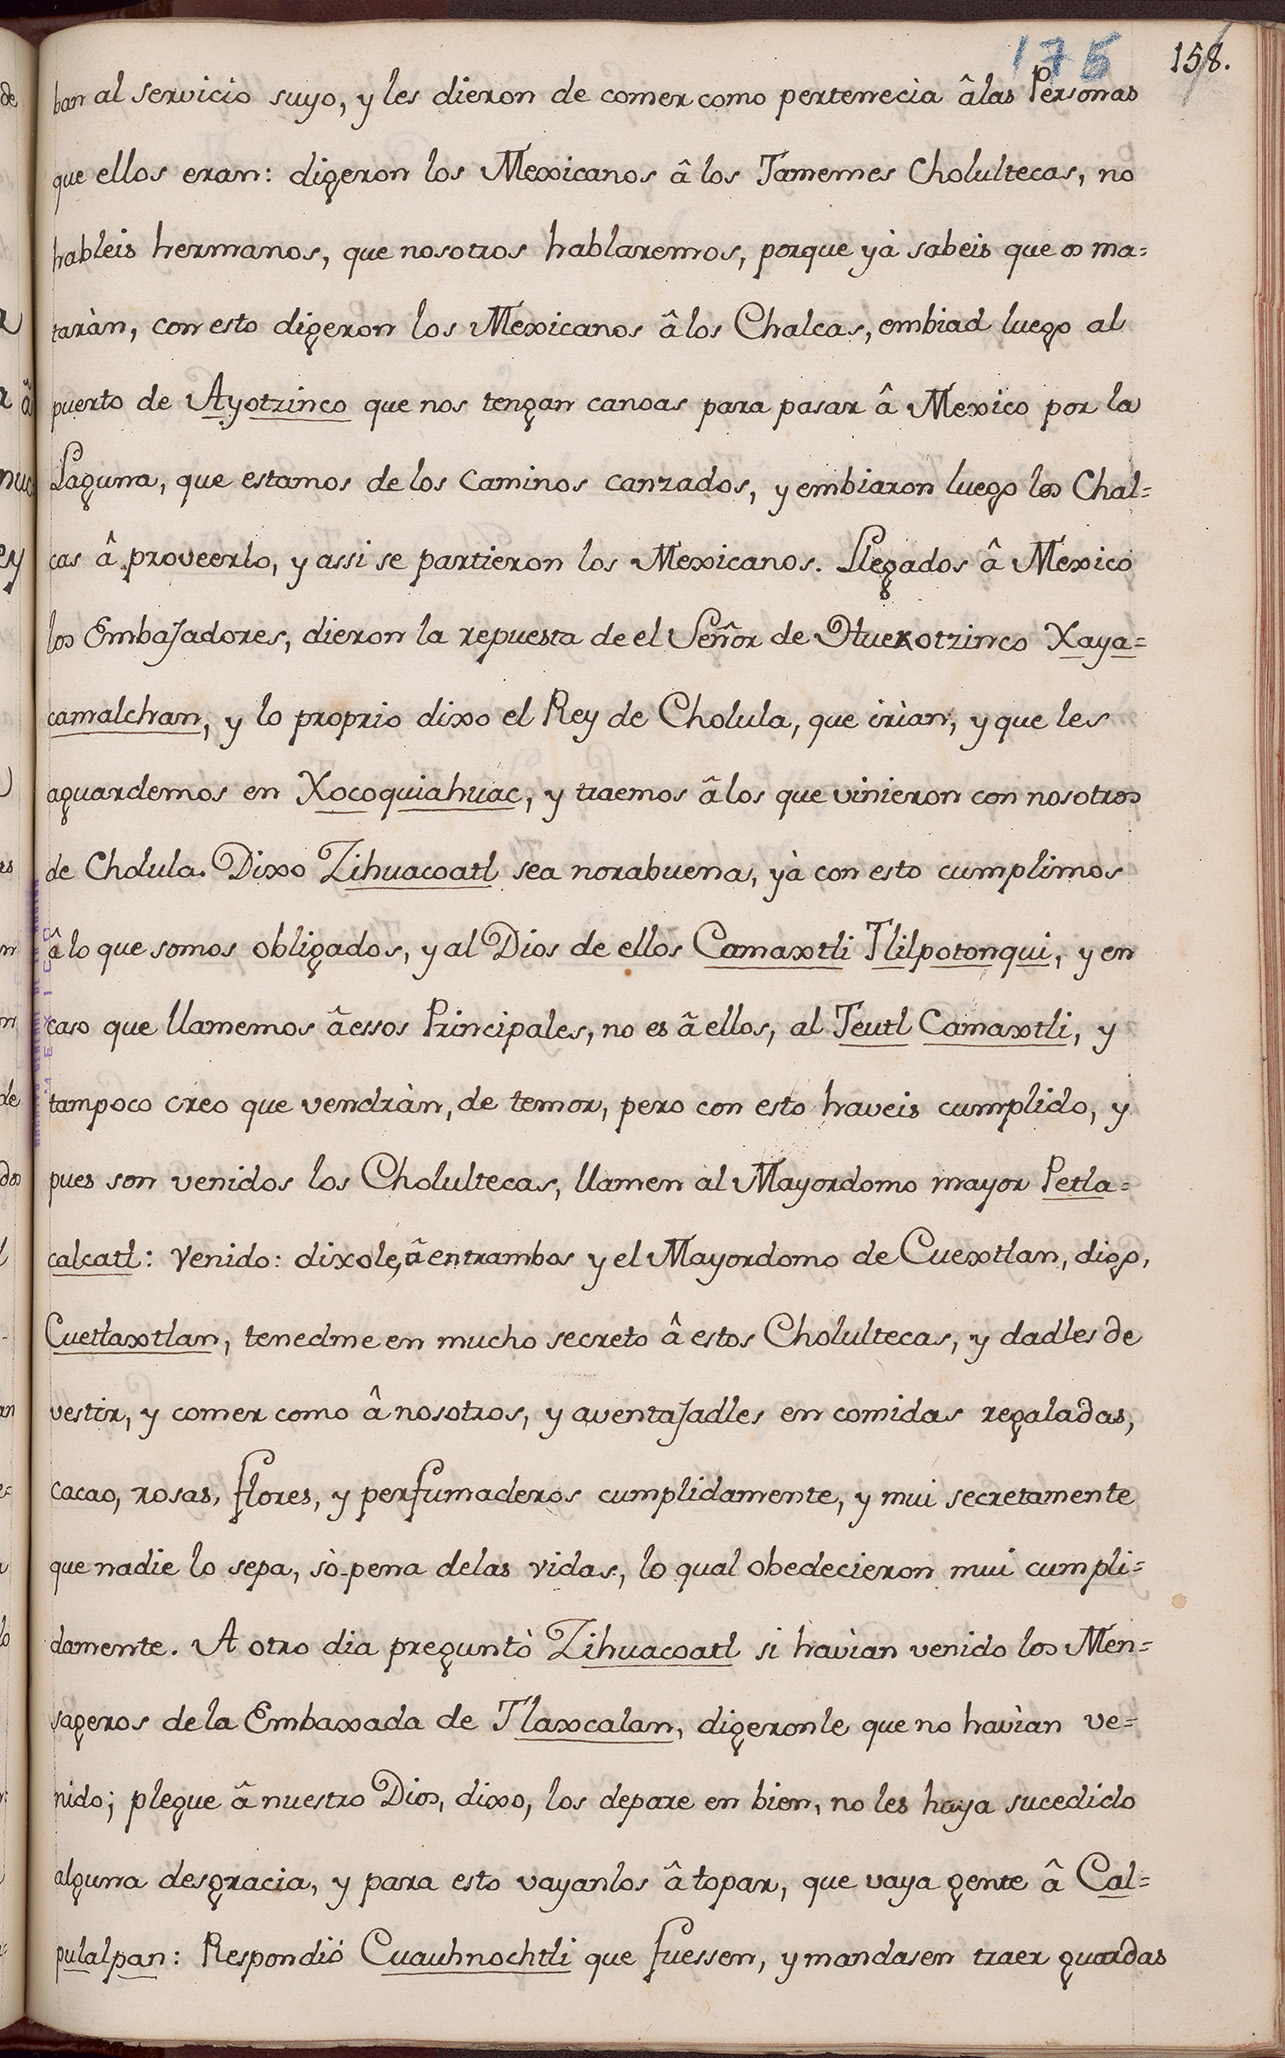 175 158.
ban al servicio suyo, y les dieron de comer como pertenecìa âlas Personas
que ellos eran: digeron los Mexicanos â los Tamemes Cholultecas, no
hableis hermanos, que nosotros hablaremos, porque yà sabeis que os ma=
taràn, con esto digeron los Mexicanos âlos Chalcas, embiad luego al
puerto de Ayotzinco que nos tengan canoas para pasar â Mexico por la
Laguna, que estamos de los Caminos canzados, y embiaron luego los Chal=
cas â proveerlo, y assi se partieron los Mexicanos. Llegados â Mexico
los Embajadores, dieron la repuesta de el Señor de Huexotzinco Xaya=
camalchan, y lo proprio dixo el Rey de Cholula, que irìan, y que les
aguardemos en Xocoquiahuac, y traemos âlos que vinieron con nosotros
de Cholula. Dixo Zihuacoatl sea norabuena, yà con esto cumplimos
â lo que somos obligados, y al Dios de ellos Camaxtli Tlilpotonqui, y en
caso que llamemos âessos Principales, no es âellos, al Teutl Camaxtli, y
tampoco creo que vendràn, de temor, pero con esto haveis cumplido, y
pues son venidos los Cholultecas, llamen al Mayordomo mayor Petla=
calcatl: Venido: dixole, â entrambos y el Mayordomo de Cuextlan, digo,
Cuetlaxtlan, tenedme en mucho secreto â estos Cholultecas, y dadles de
vestir, y comer como â nosotros, y aventajadles en comidas regaladas,
cacao, rosas, flores, y perfumaderos cumplidamente, y mui secretamente
que nadie lo sepa, sò-pena delas vidas, lo qual obedecieron mui cumpli=
damente. A otro dia preguntò Zihuacoatl si havìan venido los Men=
sageros de la Embaxada de Tlaxcalan, digeronle que no havìan ve=
nido; plegue â nuestro Dios, dixo, los depare en bien, no les haya sucedido
alguna desgracia, y para esto vayanlos â topar, que vaya gente â Cal=
pulalpan: Respondió Cuauhnochtli que fuessen, y mandasen traer guardas